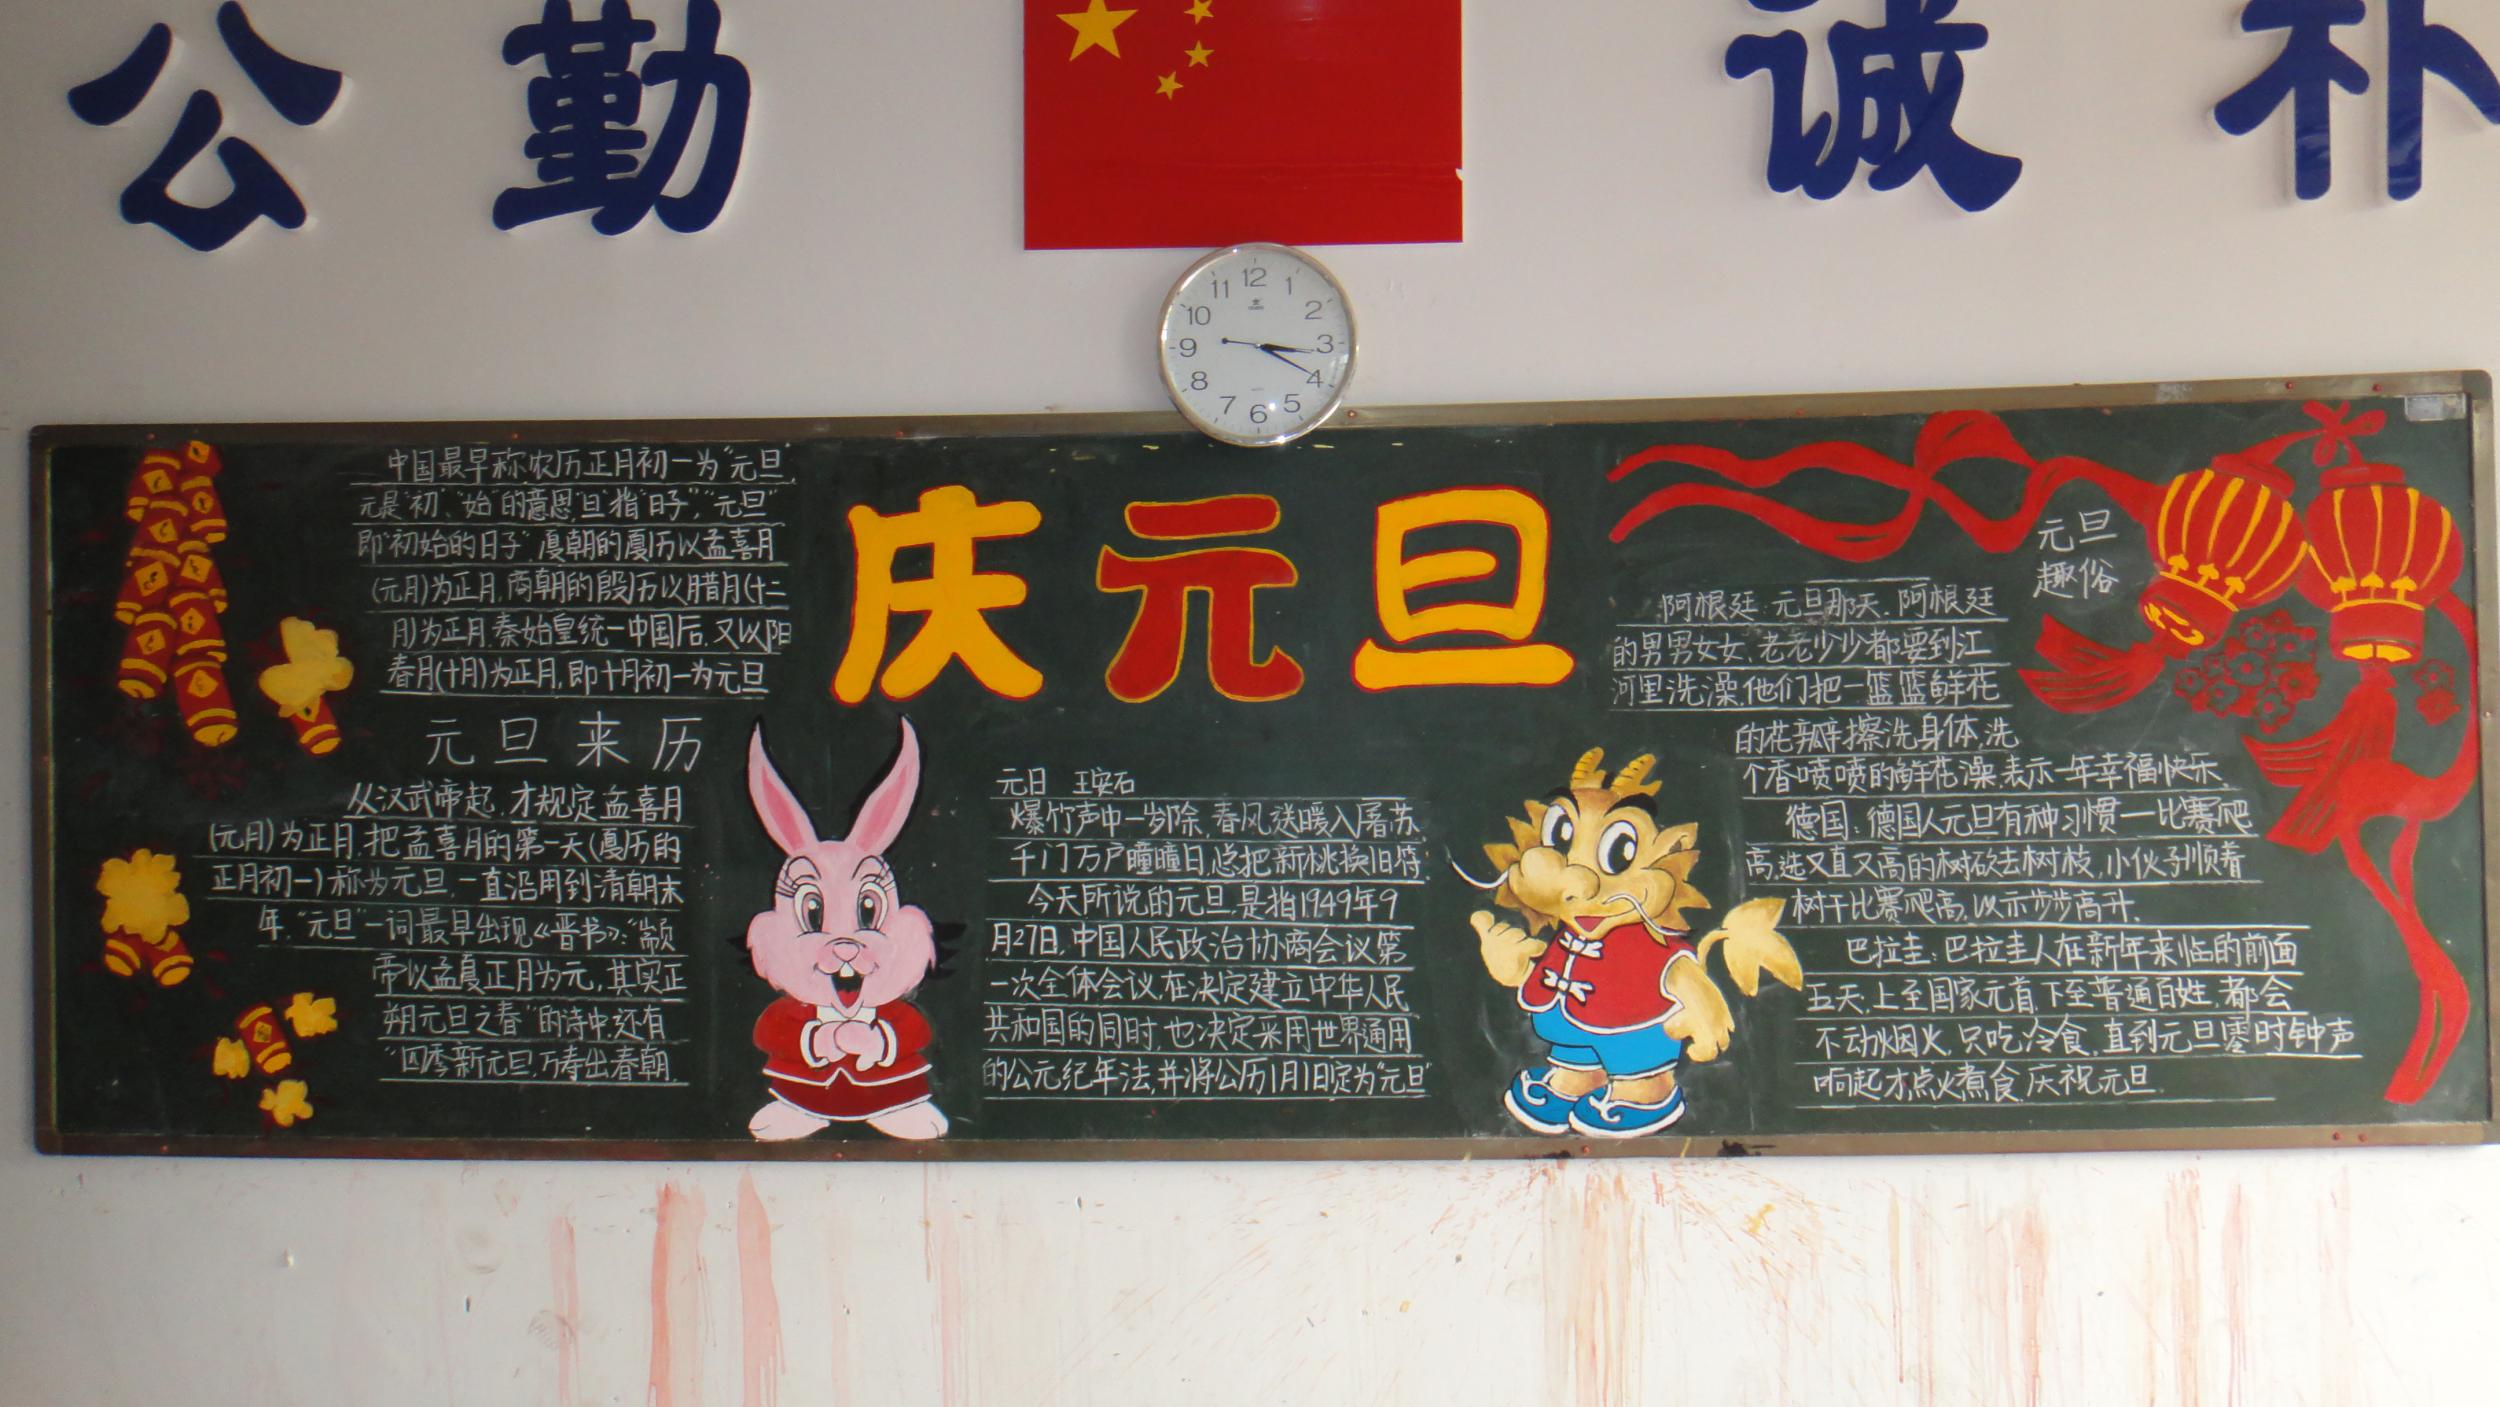 公 勤 诚 朴
12
1
2
3
4
5
6
7
8
9
10
11
庆元旦
中国最早称农历正月初一为“元旦,
元是“初”、“始”的意思,“旦”指“日子”,“元旦”
即“初始的日子”夏朝的夏历以孟喜月
(元月)为正月,商朝的殷历以腊月(十二
月)为正月,秦始皇统一中国后,又以阳
春月(十月)为正月,即十月初一为元旦
元旦来历
从汉武帝起,才规定孟喜月
(元月)为正月,把孟喜月的第一天(夏历的
正月初一)称为元旦,一直沿用到清朝末
年.“元旦”一词最早出现《晋书》:“颛
帝以孟夏正月为元,其实正
朔元旦之春”的诗中.还有
“四季新元旦,万寿出春朝.
元日 王安石
爆竹声中一岁除,春风送暖入屠苏.
千门万户瞳瞳日,总把新桃换旧符.
今天所说的元旦.是指1949年9
月27日,中国人民政治协商会议第
一次全体会议.在决定建立中华人民
共和国的同时,也决定采用世界通用
的公元纪年法,并将公历1月1日定为“元旦”
元旦
趣俗
阿根廷:元旦那天.阿根廷
的男男女女、老老少少都要到江
河里洗澡.他们把一篮篮鲜花
的花瓣擦洗身体,洗
个香喷喷的鲜花澡.表示一年幸福快乐.
德国:德国人元旦有种习惯—比赛爬
高,选又直又高的树砍去树枝,小伙子顺着
树干比赛爬高,以示步步高升.
巴拉圭:巴拉圭人在新年来临的前面
五天,上至国家元首.下至普通百姓,都会
不动烟火,只吃冷食,直到元旦零时钟声
响起才点火煮食,庆祝元旦.